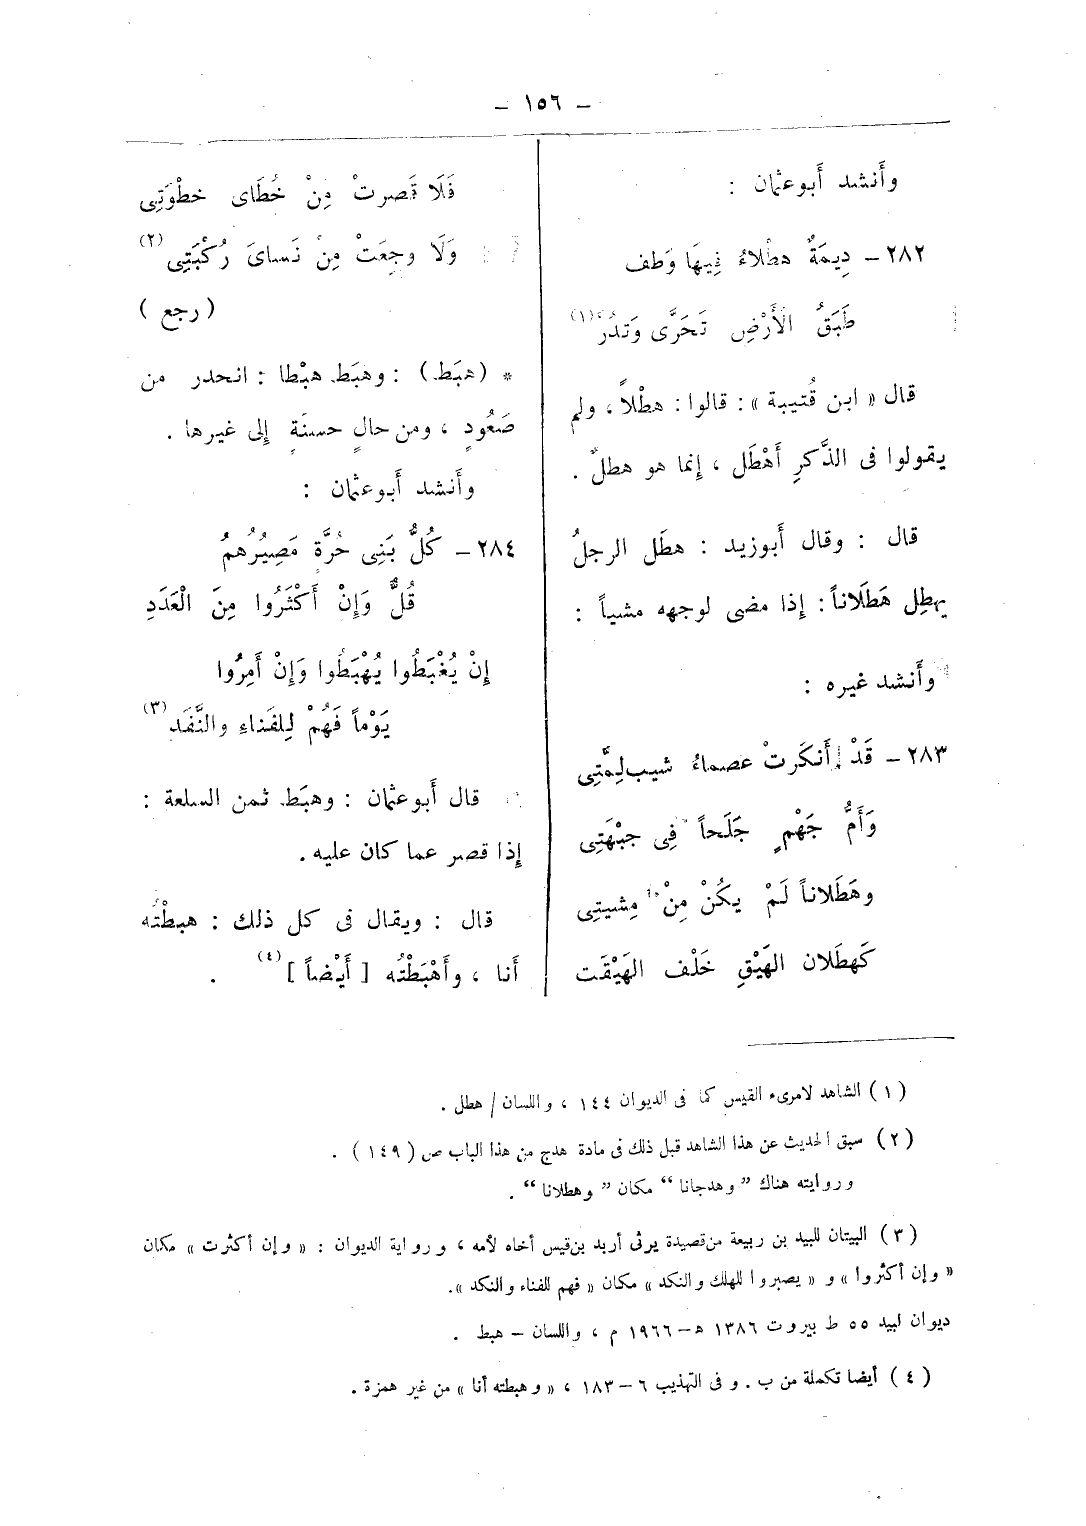 – ١٥٦ –
وأَنشد أَبوعثمان :
٢٨٢ – دِيمَةٌ هطْلاءُ فِيهَا وَطف
طَبَقُ الْأَرْضِ تَحَرَّى وَتدُر(١)
قال « ابن قُتيبة » : قالوا : هطْلاً ، ولم
يقولوا فى الذَّكرِ أَهْطَل ، إنما هو هطلٌ .
قال : وقال أَبوزيد : هطَل الرجلُ
يهطِل هَطَلَاناً : إذا مضى لوجهه مشياً :
وأَنشد غيره :
٢٨٣ – قَدْ أَنكَرتْ عصماءُ شيب لِمَّتِى
وَأُمُّ جَهْمٍ جَلَحاً فِى جبْهَتِى
وهَطَلاناً لَمْ يكُنْ مِنْ مِشيتِى
كَهطَلان الهَيْقِ خَلْف الهَيْقَت
فَلَا قَصرتْ مِنْ خُطَاى خطْوَتِى
وَلَا وجِعَتْ مِنْ نَساىَ رُكْبَتِى(٢)
( رجع )
* (هبَط) : وهبَط هبْطا : انحدر من
صَعُودٍ ، ومن حالٍ حسنَةٍ إِلى غيرها .
وأَنشد أَبوعثمان :
٢٨٤ – كُلُّ بَنِى حُرَّةٍ مَصِيرُهمُ
قُلٌّ وَإِنْ أَكْثَرُوا مِنَ الْعَدَدِ
إِنْ يُغْبَطُوا يُهْبَطُوا وَإِنْ أَمِرُوا
يَوْماً فَهُمْ لِلفَناءِ والنَّفَدِ(٣)
قال أَبوعثمان : وهبَط ثمن السلعة :
إِذا قصر عما كان عليه .
قال : ويقال فى كل ذلك : هبطْتُه
أَنا ، وأَهْبَطْتُه [ أَيْضاً ](٤) .
(١) الشاهد لامرىء القيس كما فى الديوان ١٤٤ ، واللسان / هطل .
(٢) سبق الحديث عن هذا الشاهد قبل ذلك فى مادة هدج من هذا الباب ص (١٤٩) .
وروايته هناك ” وهدجانا “ مكان ” وهطلانا “ .
(٣) البيتان للبيد بن ربيعة من قصيدة يرثى أربد بن قيس أخاه لأمه ، ورواية الديوان : « وإن أكثرت » مكان
« وإن أكثروا » و « يصبروا للهلك والنكد » مكان « فهم للفناء والنكد ».
ديوان لبيد ٥٥ ط بيروت ١٣٨٦ هـ – ١٩٦٦ م ، واللسان – هبط .
(٤) أيضا تكملة من ب . وفى التهذيب ٦ – ١٨٣ ، « وهبطته أنا » من غير همزة .